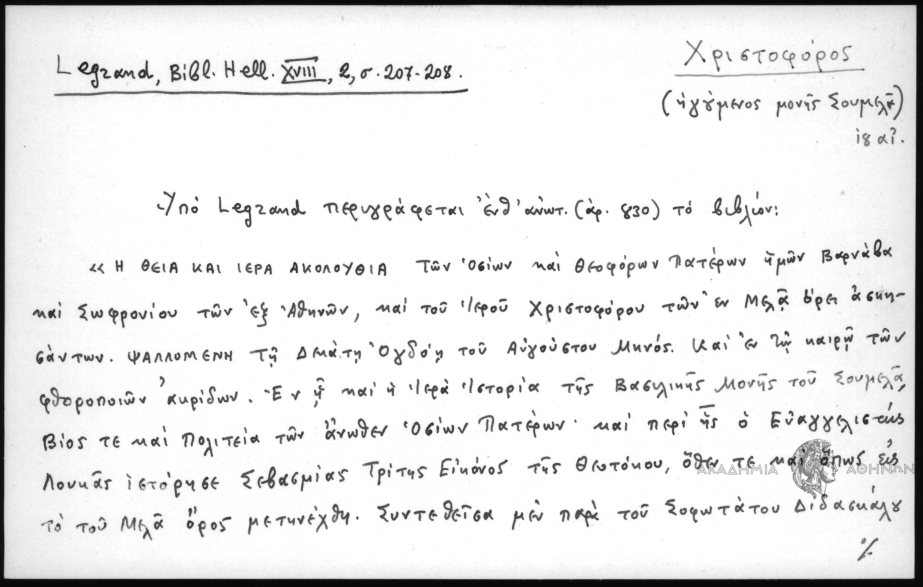 Legrand, Bibl. Hell. XVIII, 2, σ. 207-208.
Χριστοφόρος
(ἡγούμενος μονῆς Σουμελᾶ)
ιη αἰ.
Ὑπὸ Legrand περιγράφεται ἐνθ' ἀνωτ. (ἀρ. 830) τὸ βιβλίον:
« Η ΘΕΙΑ ΚΑΙ ΙΕΡΑ ΑΚΟΛΟΥΘΙΑ Τῶν Ὁσίων καὶ Θεοφόρων Πατέρων ἡμῶν Βαρνάβα
καὶ Σωφρονίου τῶν ἐξ Ἀθηνῶν, καὶ τοῦ Ἱεροῦ Χριστοφόρου τῶν ἐν Μελᾷ ὄρει ἀσκη-
σάντων. ΨΑΛΛΟΜΕΝΗ Τῇ Δεκάτῃ Ὀγδόῃ τοῦ Αὐγούστου Μηνός. Καὶ ἐν τῷ καιρῷ τῶν
φθοροποιῶν ἀκρίδων. Ἐν ᾗ καὶ ἡ Ἱερὰ Ἱστορία τῆς Βασιλικῆς Μονῆς τοῦ Σουμελᾶ,
Βίος τε καὶ Πολιτεία τῶν ἄνωθεν Ὁσίων Πατέρων· καὶ περὶ ἧς ὁ Εὐαγγελιστὴς
Λουκᾶς ἱστόρησε Σεβασμίας Τρίτης Εἰκόνος τῆς Θεοτόκου, ὅθεν τε καὶ ὅπως εἰς
τὸ τοῦ Μελᾶ ὄρος μετηνέχθη. Συντεθεῖσα μὲν παρὰ τοῦ Σοφωτάτου Διδασκάλου
%
ΑΚΑΔΗΜΙΑ ΑΘΗΝΩΝ